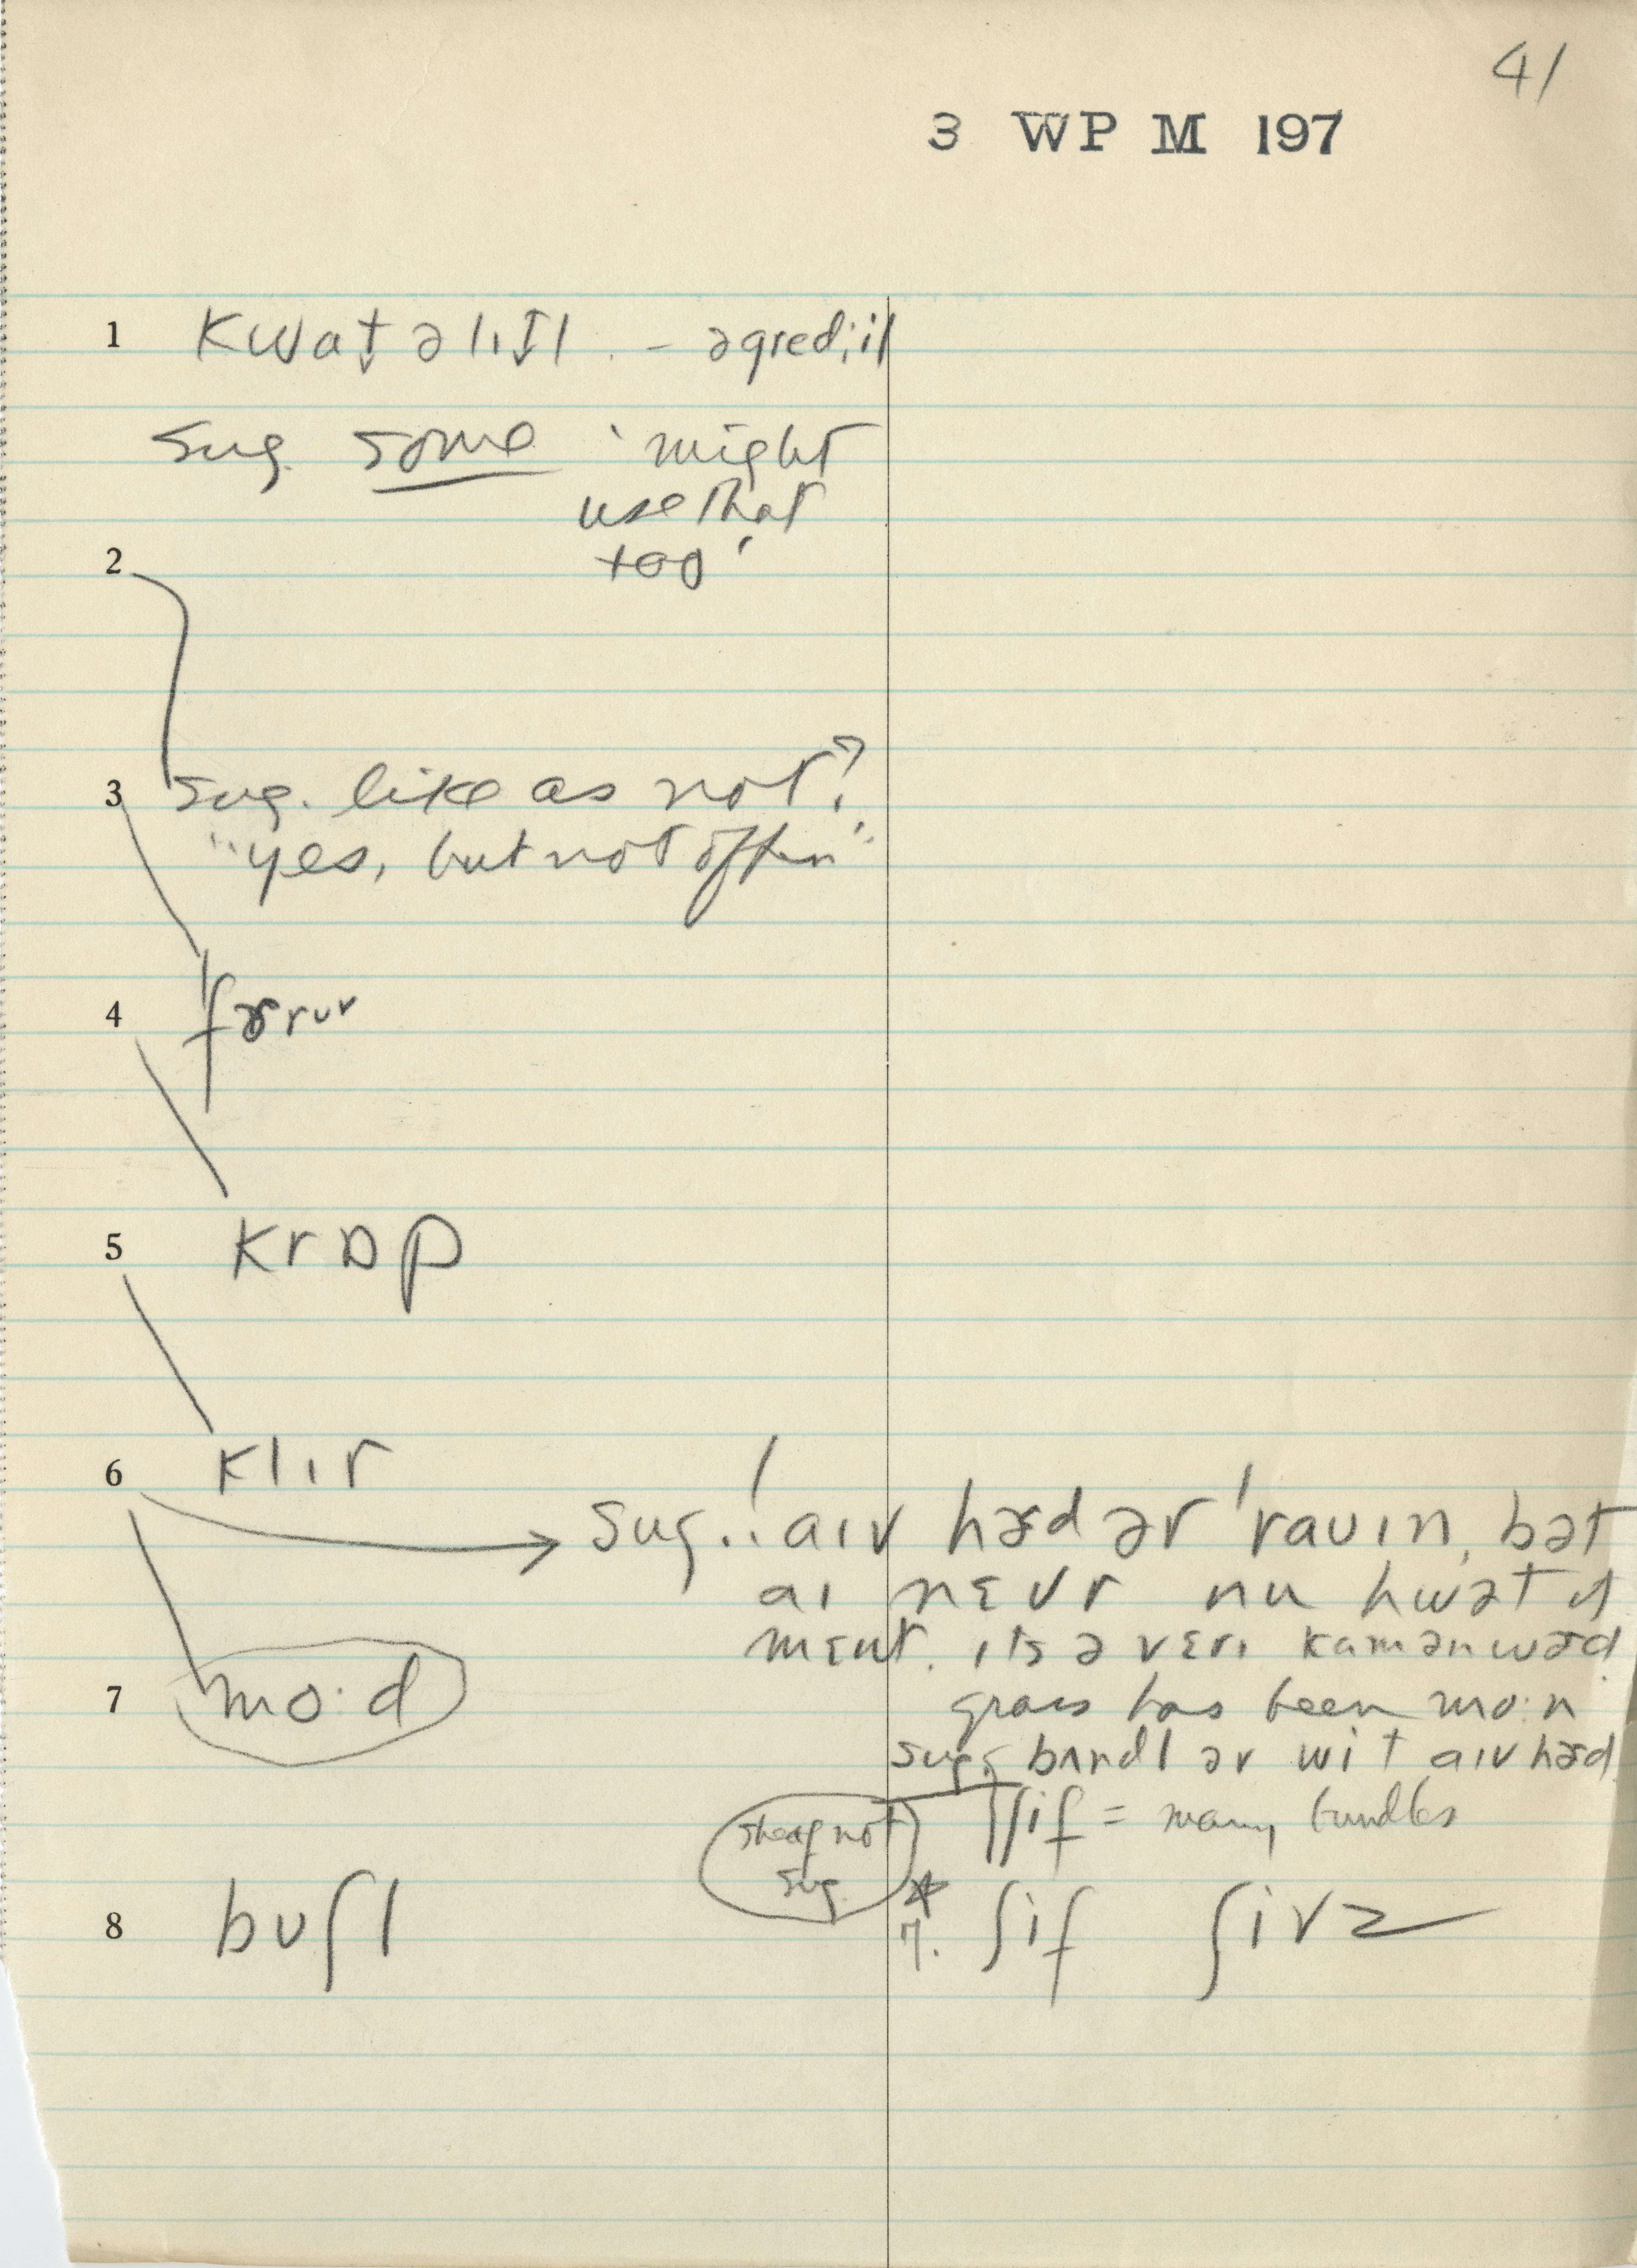 41
3 WP M 197
1 kwat̬ə lɪt̬l. – agred; il
sug. some 'might
use that
too'
2
3 sug. like as not?
"yes, but not often"
4
5 krɒp
6 klɪr
sug.: aɪv hɝd ər 'rauɪn, bət
aɪ nɛvr nu hwət it
mɛnt. ɪts ə vɛrɪ kamənwɝd
7 mo:d
grass has been mo:n
sug. bʌndl əv wit aɪv hɝd
ʃif = many bundles
sheaf not
sug.
*
8 buʃl
7. ʃif ʃivz